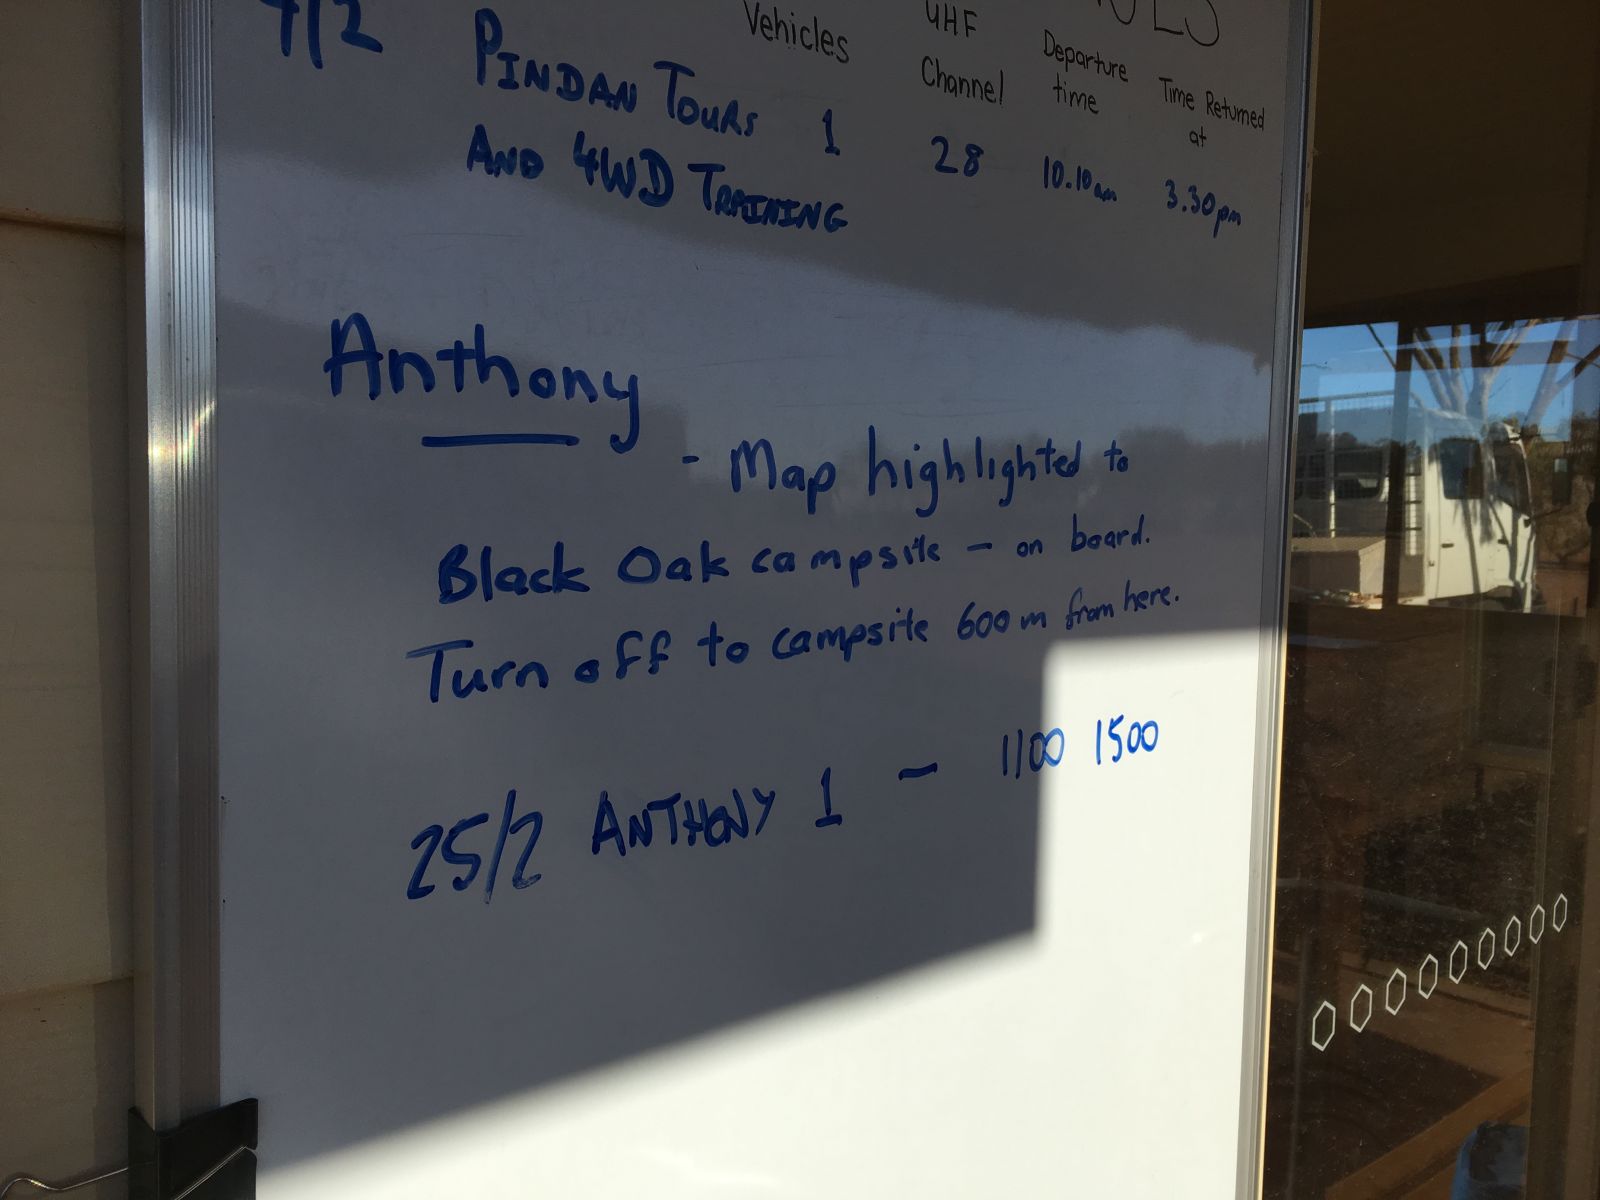 Vehicles UHF Channel Departure time Time Returned at
7/2 PINDAN TOURS 1 28 10.10am 3.30pm
AND 4WD TRAINING
Anthony
- Map highlighted to
Black Oak campsite - on board.
Turn off to campsite 600m from here.
25/2 ANTHONY 1 - 1100 1500